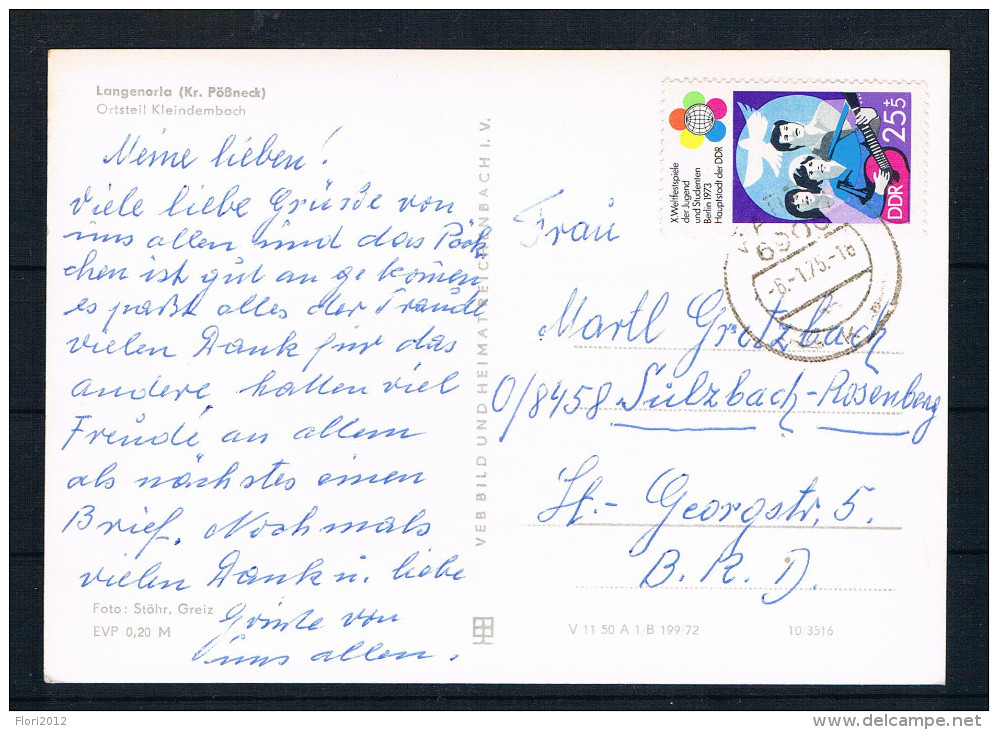 Langenorla (Kr. Pößneck)
Ortsteil Kleindembach
Meine lieben!
Viele liebe Grüsse von
uns allen und das Päck
chen ist gut an ge kommen
es paßt alles der Traudl
vielen Dank für das
andere hatten viel
Freude an allem
als nächstes einen
Brief. Nochmals
vielen Dank u. liebe
Grüße von
uns allen.
Foto: Stöhr, Greiz
EVP 0,20 M
VEB BILD UND HEIMAT REICHENBACH I. V.
X. Weltfestspiele
der Jugend
und Studenten
Berlin 1973
Hauptstadt der DDR
25+5
DDR
-6.-1.75.-18
Frau
Martl Grötzbach
O/8458 Sulzbach-Rosenberg
St.-Georgstr. 5.
B. R. D.
V 11 50 A 1/B 199/72
10/3516
Flori2012
delcampe.net